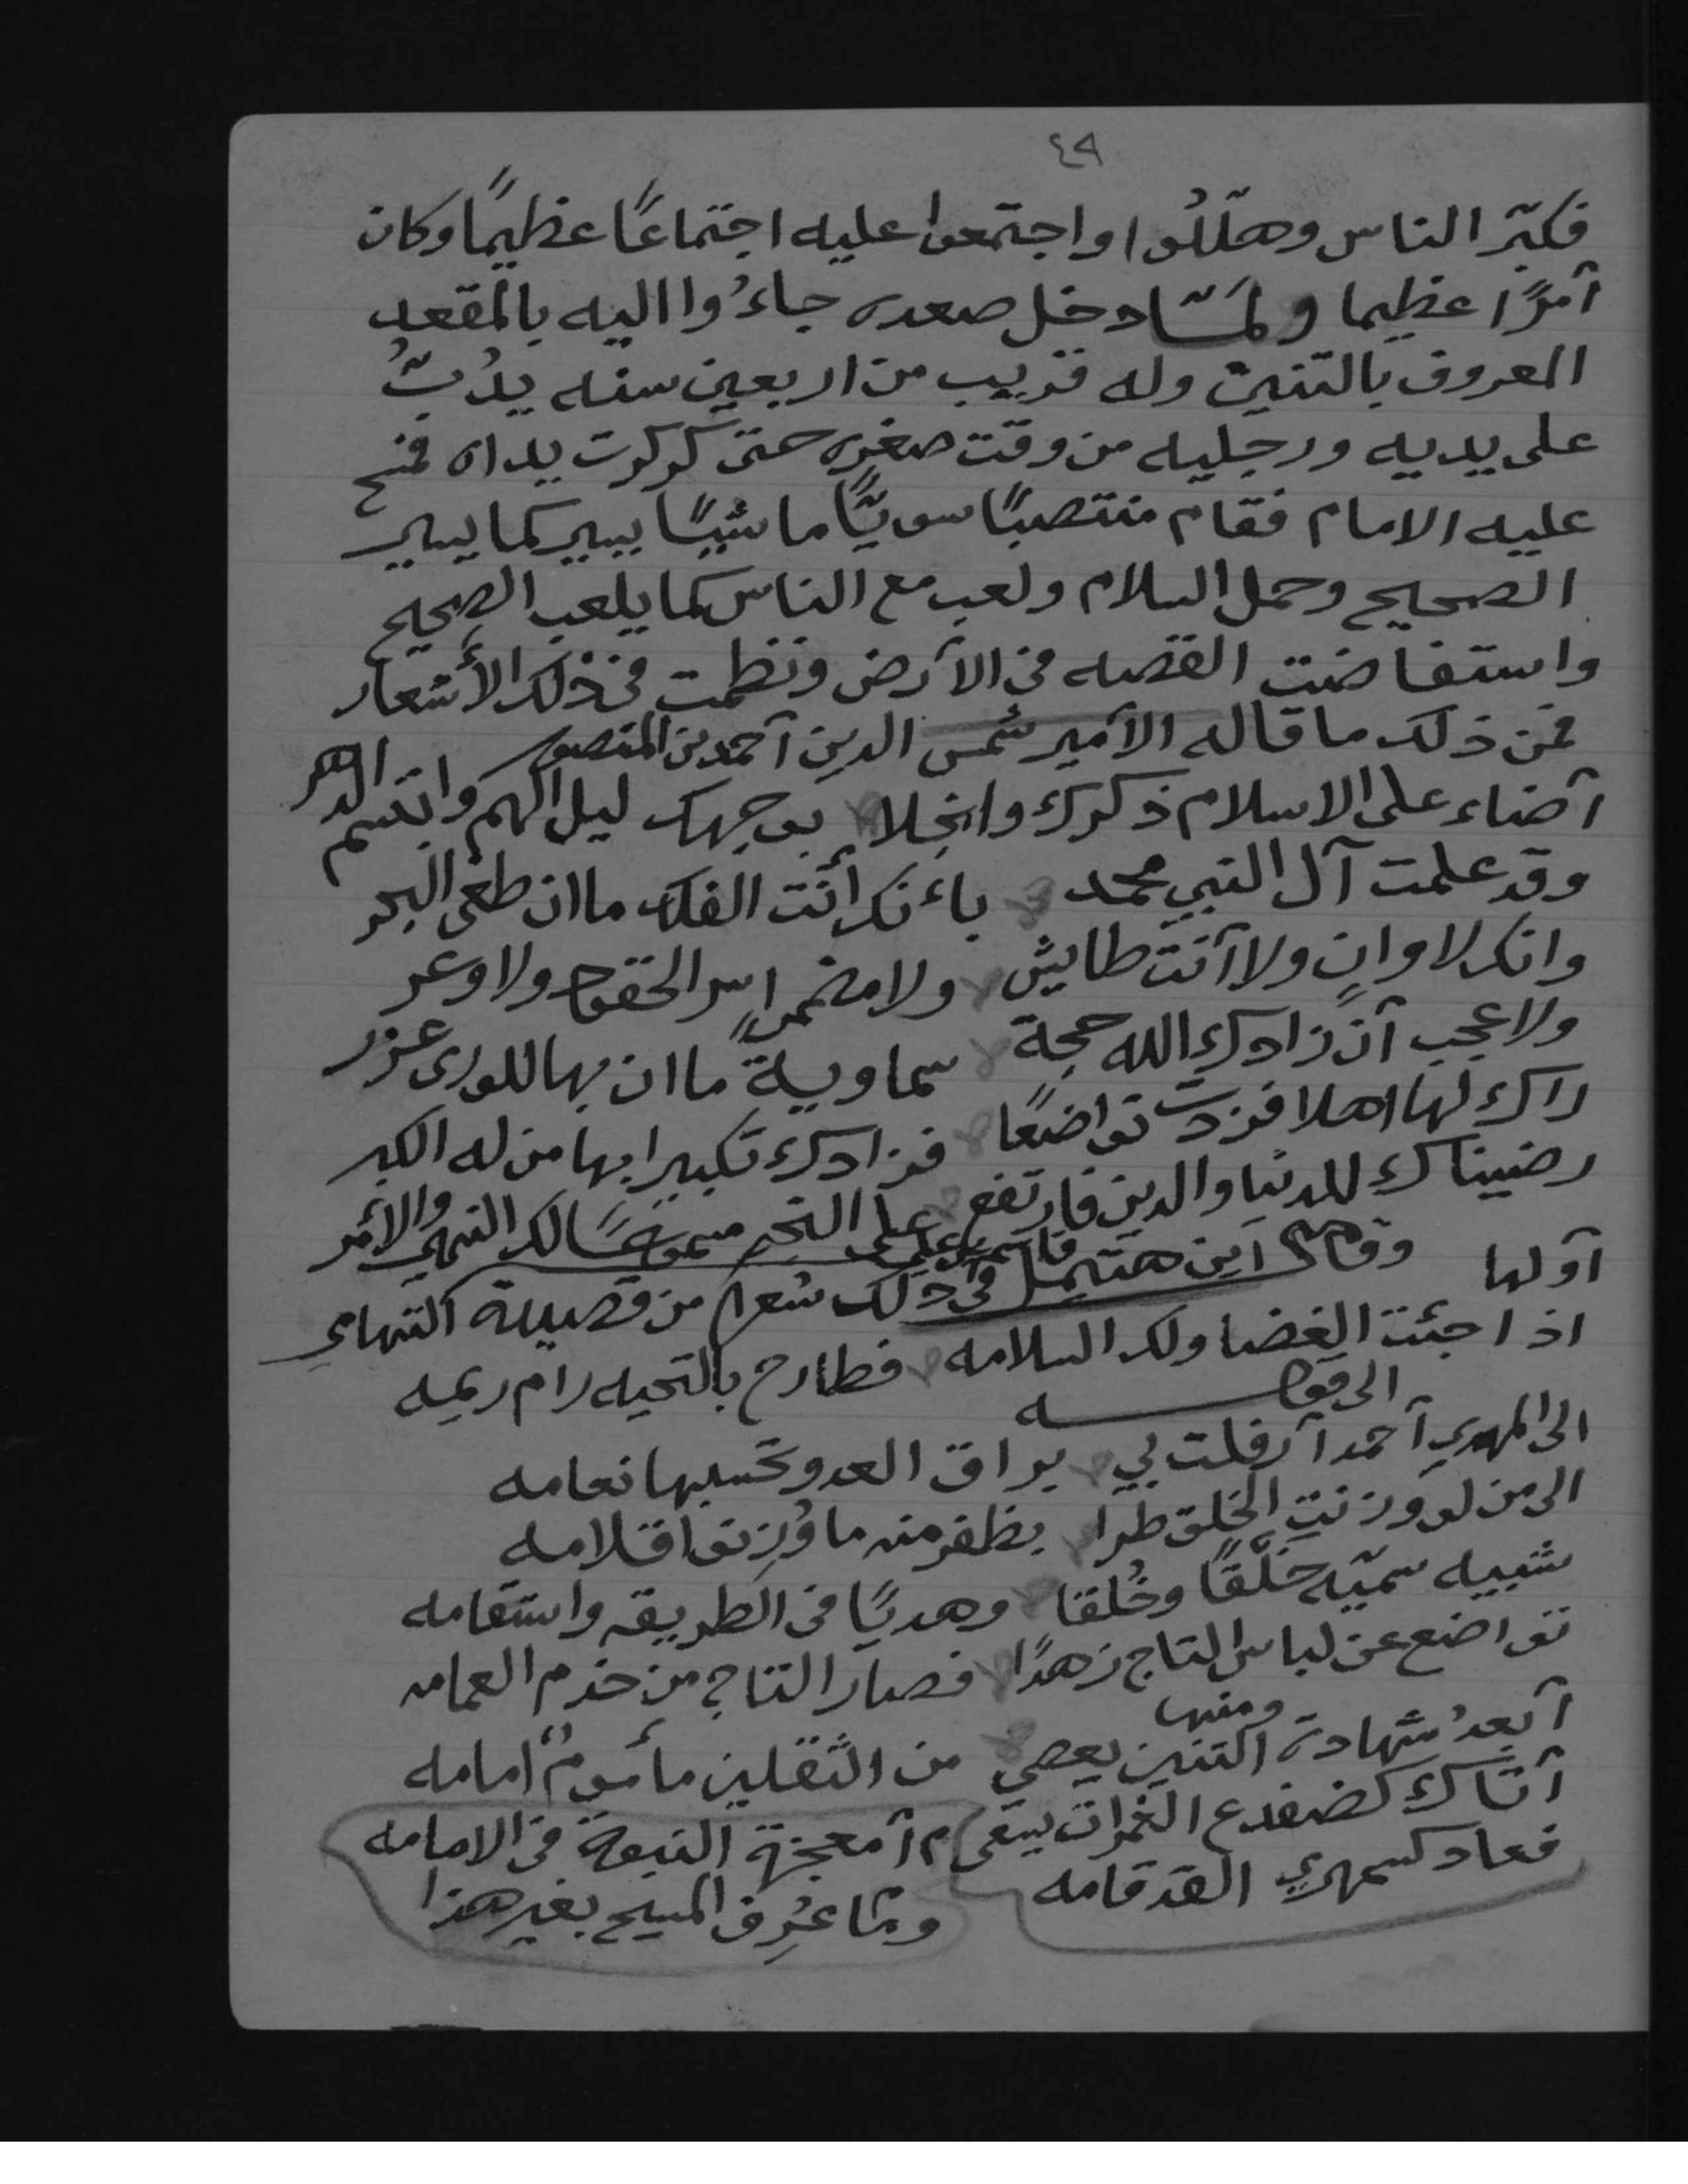 ٤٩
فكبّر الناس وهلّلُوا واجتمعوا عليه اجتماعًا عظيمًا وكان
أمرًا عظيما ولمّا دخل صعده جاءُوا اليه بالمقعد
المعروف بالتنين وله قريب من اربعين سنه يدُبّ
على يديه ورجليه من وقت صغره حتى كركرت يداه فمسح
عليه الامام فقام منتصبًا سويًّا ماشيًا يسير كما يسير
الصحيح وحمل السلام ولعب مع الناس كما يلعب الصحيح
واستفاضت القصه في الأرض ونظمت في ذلك الأشعار
فمن ذلك ما قاله الأمير شمس الدين أحمد بن المنصور
أضاء على الاسلام ذكرك وانجلا بوجهك ليل الهم وابتسم الدهر
وقد علمت آل النبي محمد بأنك أنت الفلك ما ان طغى البحر
وانك لا وانٍ ولا أنت طايش ولا مضمرًا سر الحقود ولا وعر
ولا عجب أن زادك الله حجة سماويةً ما ان بها للورى عزر
راك لها اهلا فزدت تواضعًا فزادك تكبيرا بها من له الكبر
رضيناك للدنيا والدين فارتفع على النجم مسموعًا لك النهي والأمر
وقال ابن هتيمل قاسم بن علي في ذلك شعرا من قصيدة التهامي
أولها
اذا جئت الغضا ولك السلامه فطارح بالتحيه رام ريمه
الى قوله
الى المهدي أحمد أرفلت بي براق العدو تحسبها نعامه
الى من لو وزنتِ الخلق طرا بظفر منه ما وُزِنوا قلامه
شبيه سميّه خَلْقًا وخُلقا وهديًا في الطريقه واستقامه
تواضع عن لباس التاج زهدًا فصار التاج من خدم العمامه
ومنها
أبعدُ شهادة التنين يعصي من الثقلين مأمومٌ امامه
أتاك كضفدع الغمرات يسعى م أمعجزة النبوة في الامامه
فعاد كسمهري القد قامه وما عُرِف المسيح بغير هذا